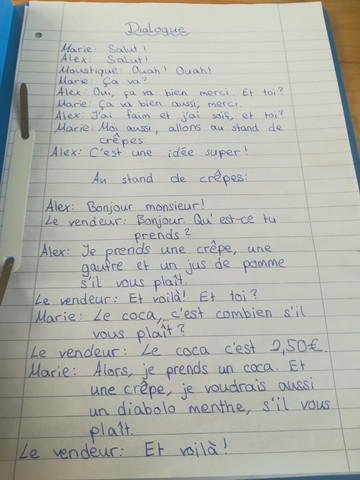 Dialogue
Marie: Salut!
Alex: Salut!
Moustique: Ouah! Ouah!
Marie: Ça va?
Alex: Oui, ça va bien merci. Et toi?
Marie: Ça va bien aussi, merci.
Alex: J'ai faim et j'ai soif, et toi?
Marie: Moi aussi, allons au stand de
crêpes.
Alex: C'est une idée super!
Au stand de crêpes:
Alex: Bonjour monsieur!
Le vendeur: Bonjour. Qu'est-ce tu
prends?
Alex: Je prends une crêpe, une
gaufre et un jus de pomme
s'il vous plaît.
Le vendeur: Et voilà! Et toi?
Marie: Le coca, c'est combien s'il
vous plaît?
Le vendeur: Le coca c'est 2,50€.
Marie: Alors, je prends un coca. Et
une crêpe, je voudrais aussi
un diabolo menthe, s'il vous
plaît.
Le vendeur: Et voilà!